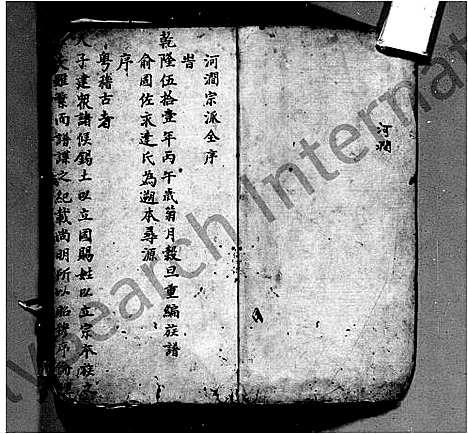 河澗
河澗宗派全序
旹
乾隆伍拾壹年丙午歲菊月穀旦重編族譜
俞國佐永達氏為遡本尋源
序
粵稽古者
天子建衆諸侯錫土以立國賜姓以立宗本族之
而譜諜之紀載尚明所以昭穆序
lySearch Internat